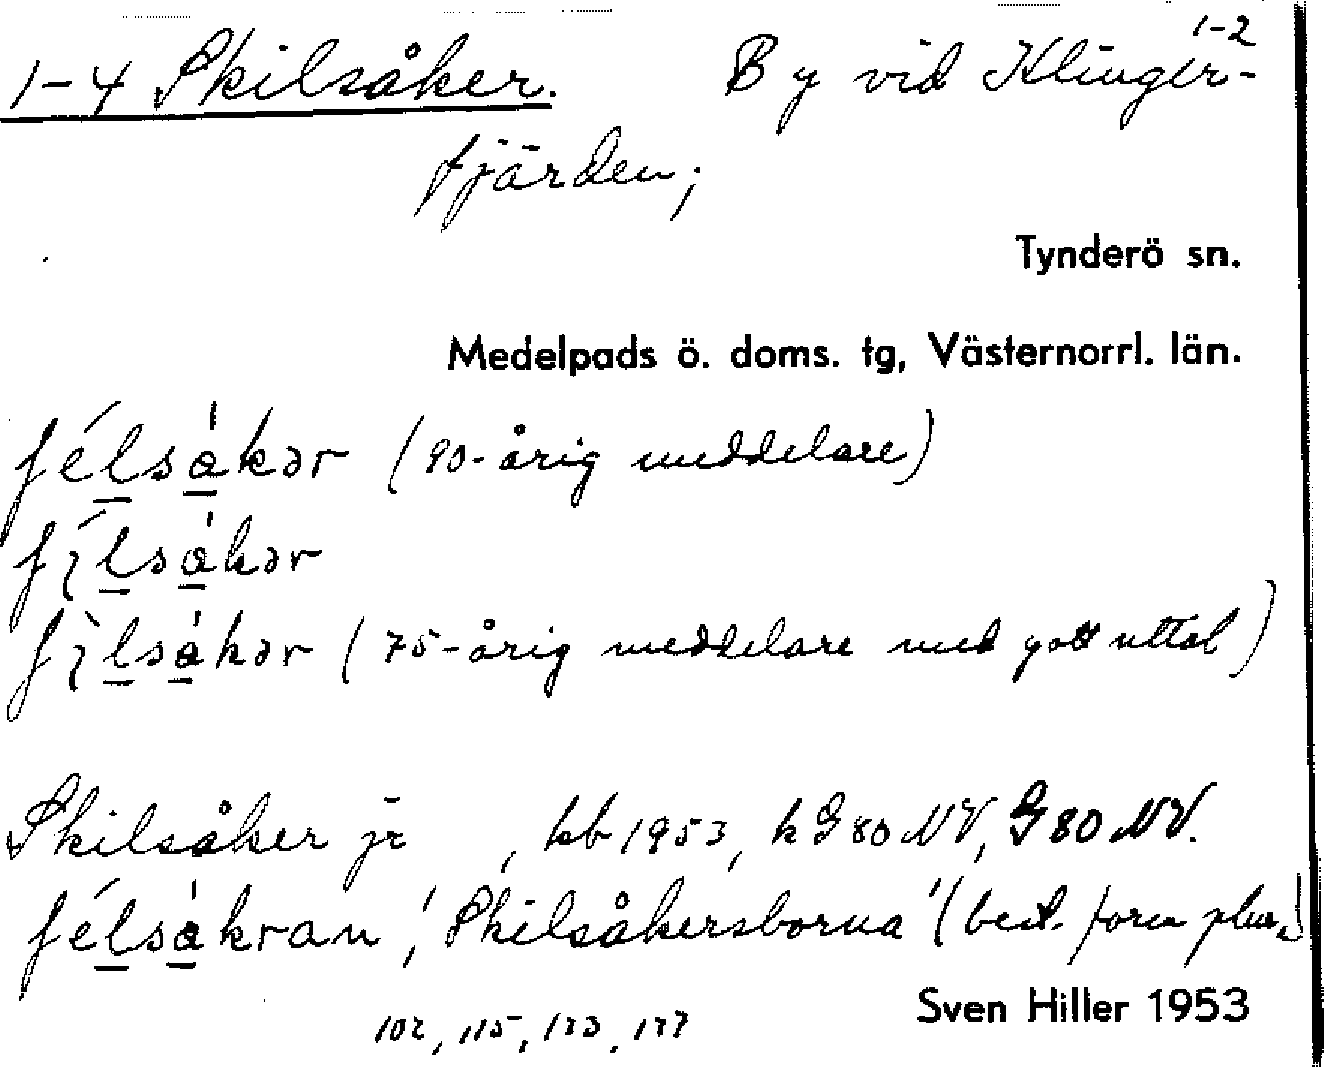 1-4 Skilsåker. By vid Klinger- 1-2
fjärden;
Tynderö sn.
Medelpads ö. doms. tg, Västernorrl. län.
ʃélsákər (90-årig meddelare)
ʃílsákər
ʃìlsákər (75-årig meddelare med gott uttal)
Skilsåker jr , kb 1953, k G 80 NV, G 80 NV.
ʃélsákran, 'Skilsåkersborna' (best. form plur.)
Sven Hiller 1953
102, 115, 123, 127